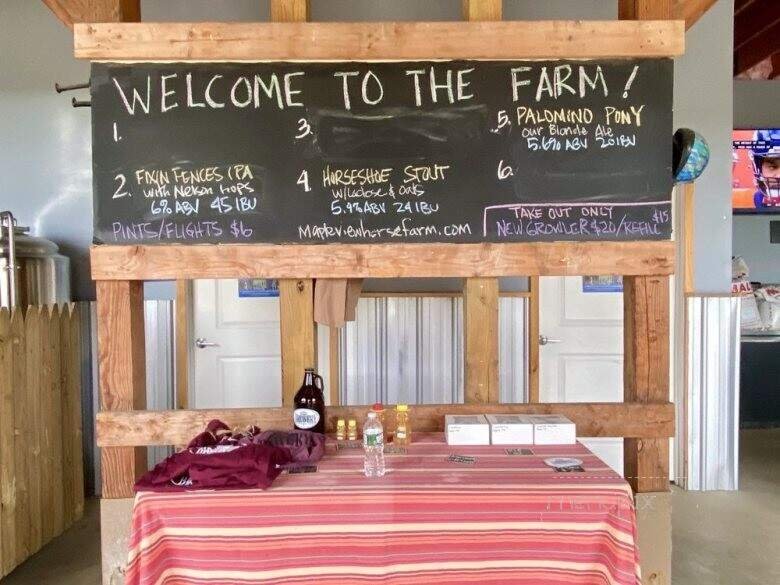 WELCOME TO THE FARM!
1.
2. FIXIN FENCES IPA
with Nelson Hops
6% ABV 45 IBU
3.
4. HORSESHOE STOUT
w/ lactose & oats
5.9% ABV 24 IBU
5. PALOMINO PONY
our Blonde Ale
5.6% ABV 20 IBU
6.
PINTS/FLIGHTS $6
Mapleviewhorsefarm.com
TAKE OUT ONLY
NEW GROWLER $20/REFILL $15